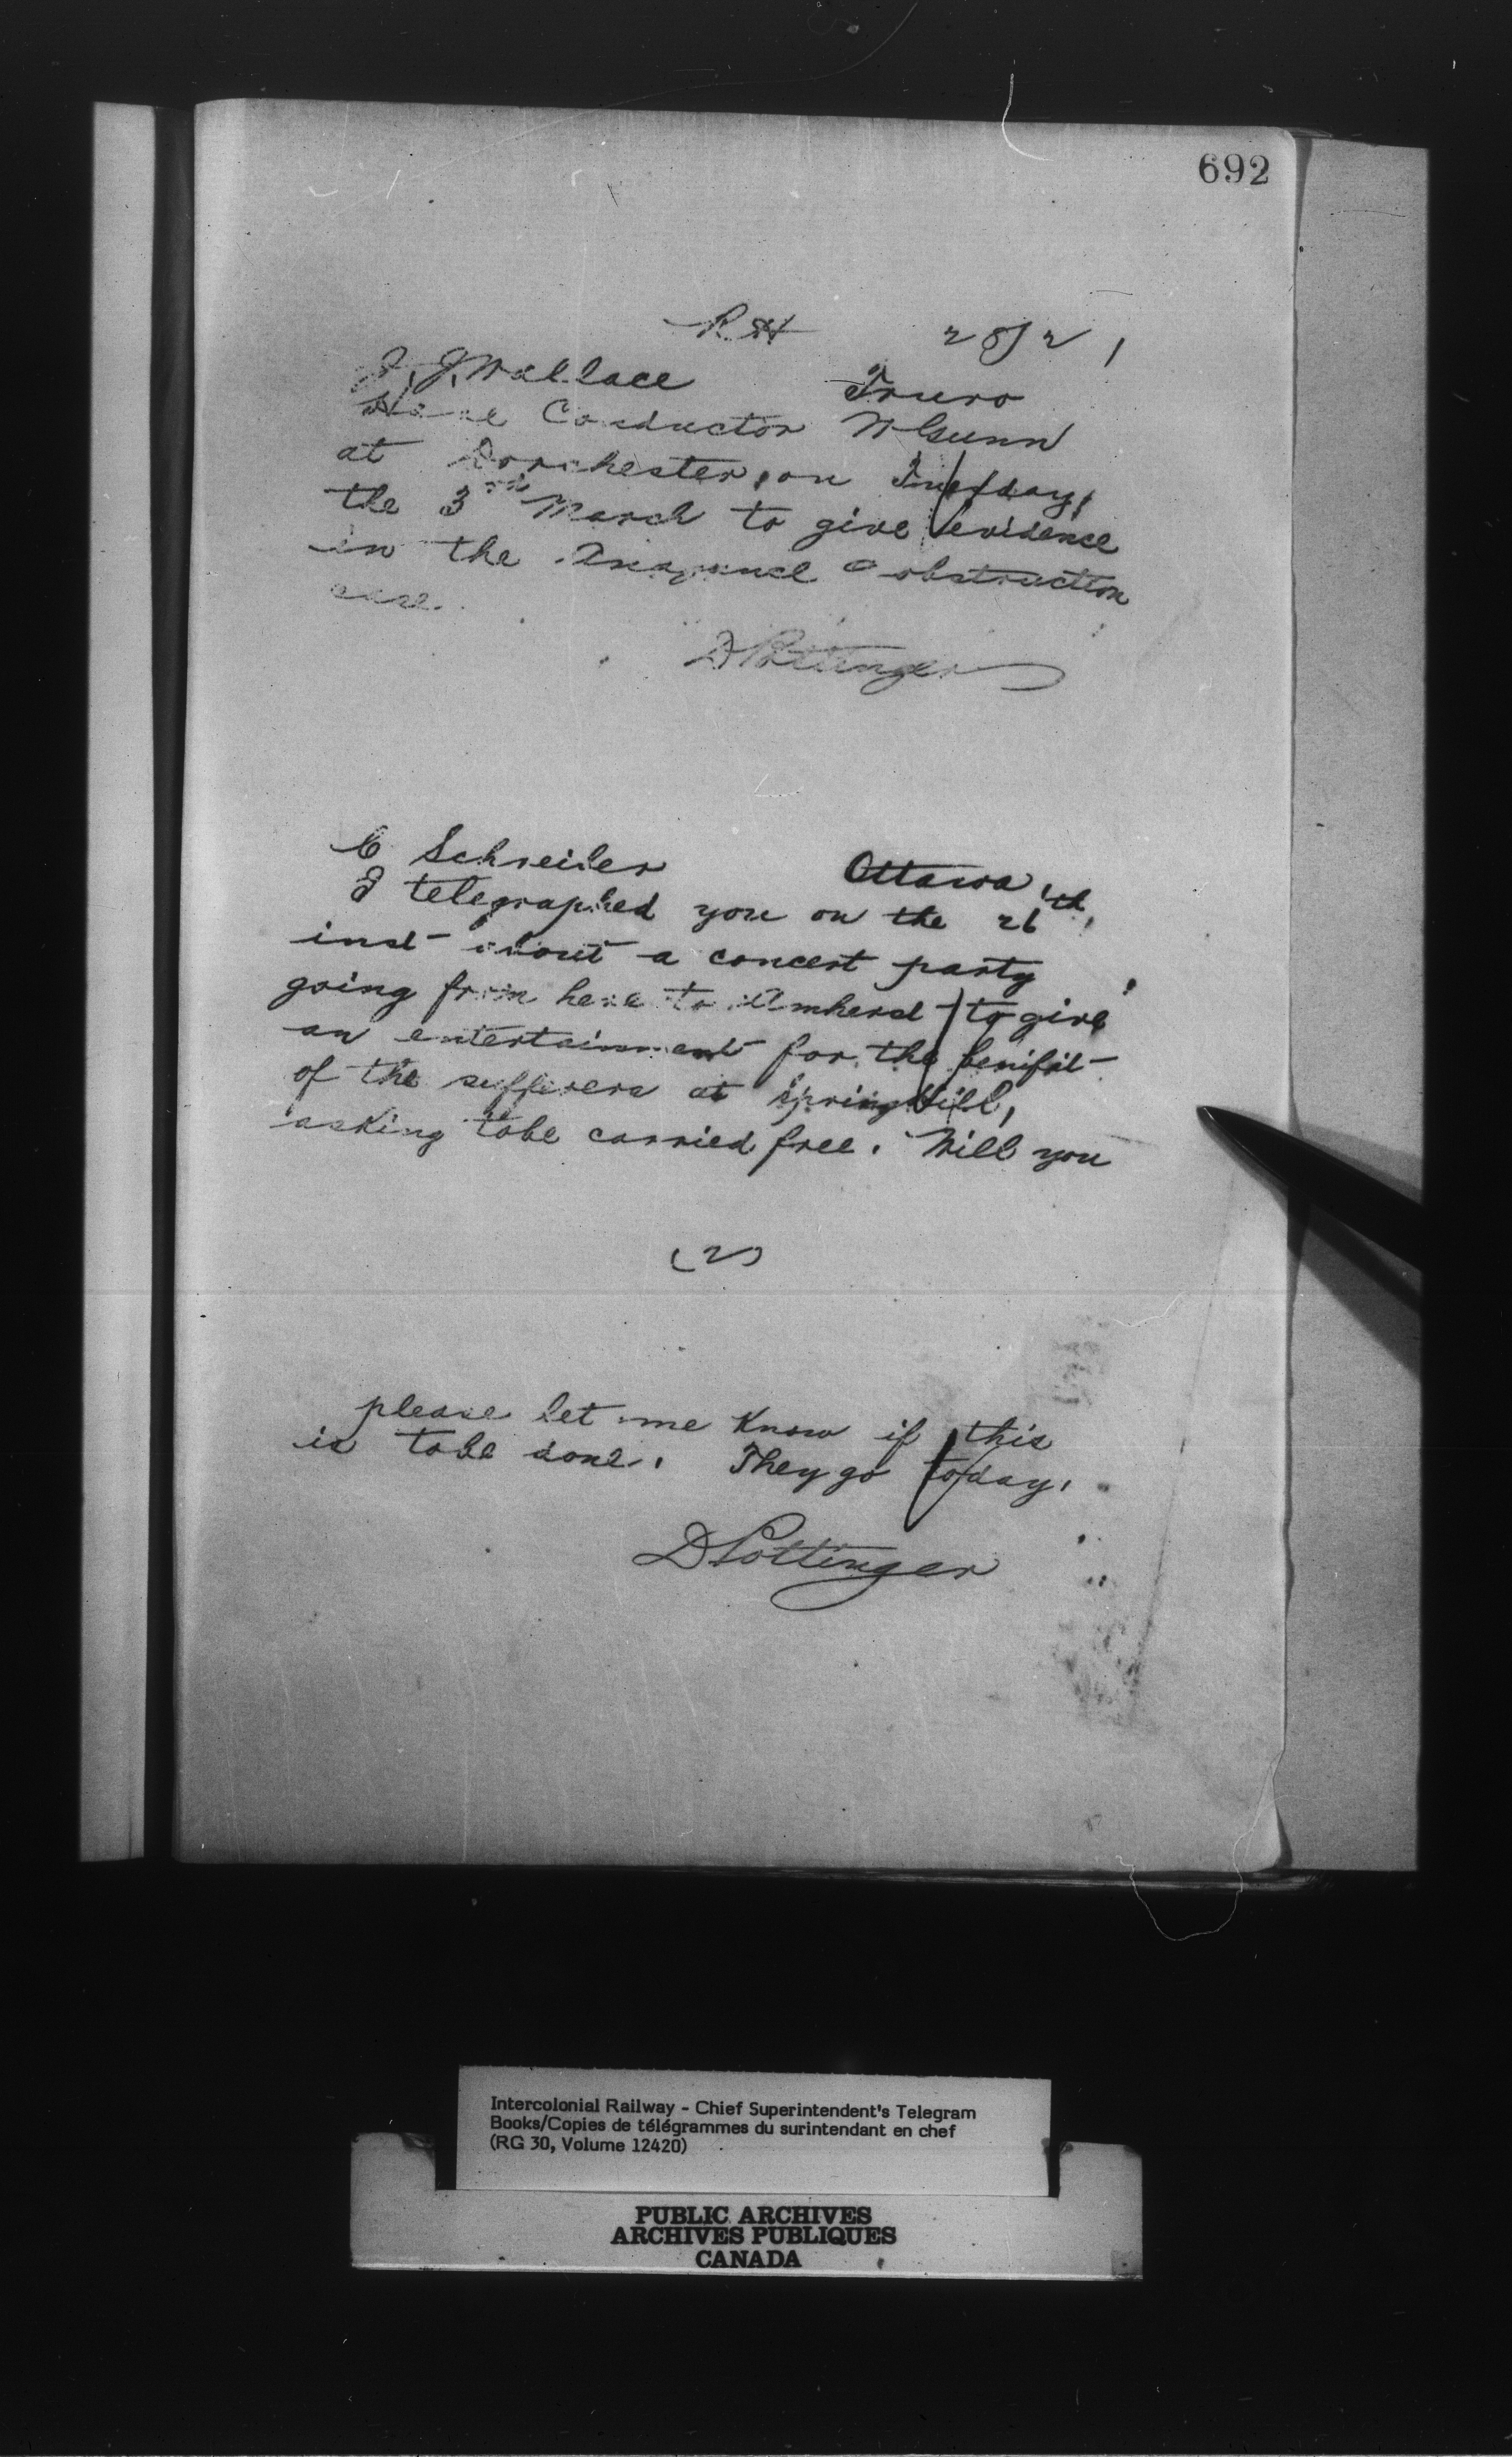 692
R.H 28/2/
J. J. Wallace Truro
Have Conductor McGunn
at Dorchester, on Tuesday,
the 3rd March to give evidence
in the obstruction
case.
D Pottinger
C Schreiber Ottawa
I telegraphed you on the 26th,
inst about a concert party
going from here to Amherst to give
an entertainment for the benifit
of the sufferers at Spring Hill,
asking to be carried free. Will you
(2)
please let me know if this
is to be done. They go today.
D Pottinger
Intercolonial Railway - Chief Superintendent's Telegram
Books/Copies de télégrammes du surintendant en chef
(RG 30, Volume 12420)
PUBLIC ARCHIVES
ARCHIVES PUBLIQUES
CANADA